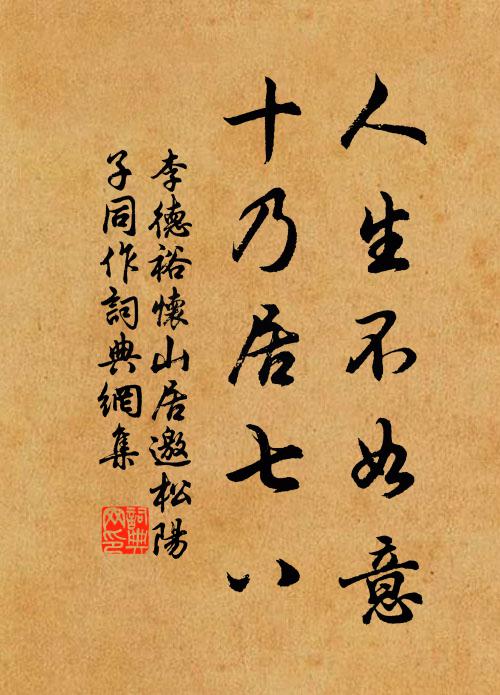 人生不如意
十乃居七八
李德裕懷山居邀松陽
子同作詞典網集
詞典
網印